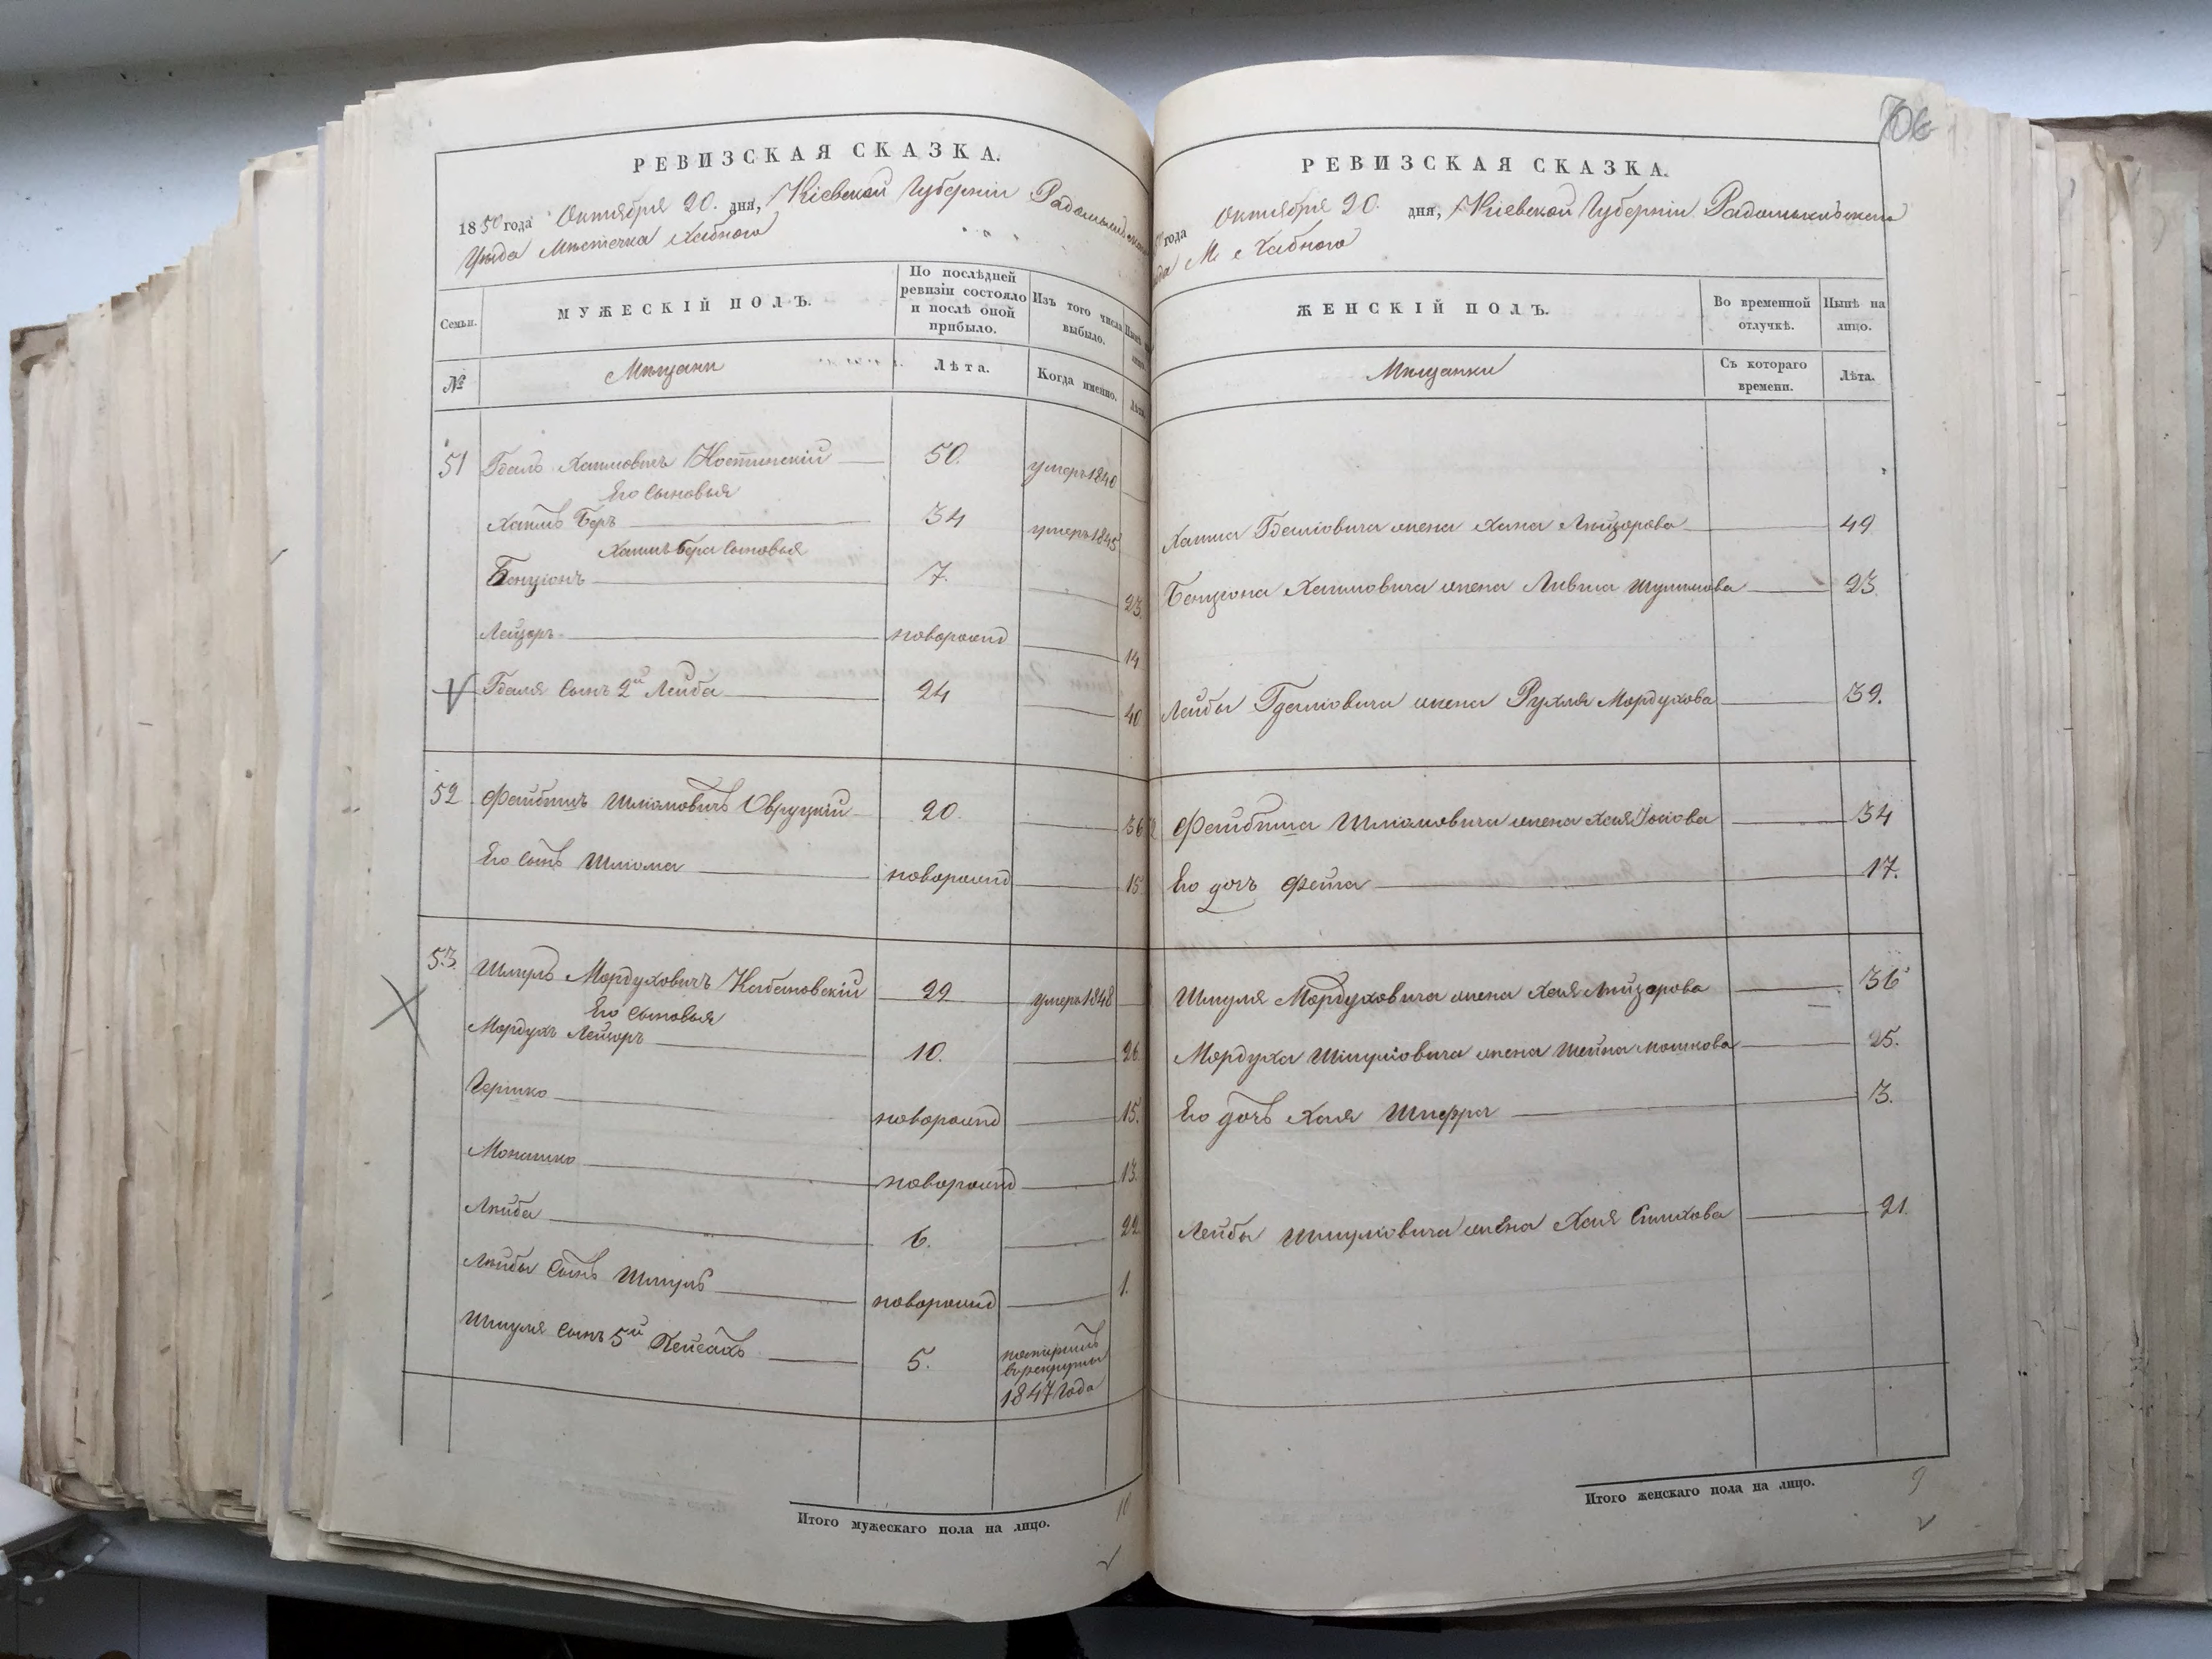 РЕВИЗСКАЯ СКАЗКА.
1850 года Октября 20. дня, Кіевской Губерніи Радомысльскаго
Уѣзда Мѣстечка Хабного
Семьи.
МУЖЕСКІЙ ПОЛЪ.
По послѣдней
ревизіи состояло
и послѣ оной
прибыло.
Изъ того числа
выбыло.
№
Мѣщани
Лѣта.
Когда именно.
Лѣта.
51 Гдаль Хаимовичъ Костинскій 50. умеръ 1840
Его Сыновья
Хаимъ Беръ 34 умеръ 1845
Хаимъ Бера Сыновья
Бенціонъ 7. 23.
Лейзоръ новорожд 14
Гдаля Сынъ 2й Лейба 24 40
52 Файбишъ Шліомовичъ Овруцкій 20. 36
Его Сынъ Шліома новорожд 15
53. Шмуль Мордуховичъ Кабановскій 29 умеръ 1848
Его Сыновья
Мордухъ Лейзоръ 10. 26.
Гершко новорожд 15.
Монашко новорожд 13.
Лейба 6. 22
Лейбы Сынъ Шмуль новорожд 1.
Шмуля Сынъ 5й Пейсахъ 5.
1847 Года
Итого мужескаго пола на лицо.
706
РЕВИЗСКАЯ СКАЗКА.
года Октября 20. дня, Кіевской Губерніи Радомысльскаго
М. Хабного
ЖЕНСКІЙ ПОЛЪ.
Во временной
отлучкѣ.
Нынѣ на
лицо.
Мѣщанки
Съ котораго
времени.
Лѣта.
Хаима Гдаліовича жена Хана Лейзорова 49
Бенціона Хаимовича жена Ливша Шулимова 23.
Лейбы Гдаліовича жена Рухля Мордухова 39.
Файбиша Шліомовича жена Хая Іосіова 34
Его дочь Фейга 17.
Шмуля Мордуховича жена Хая Лейзорова 36
Мордуха Шмуліовича жена Шейна Мошкова 25.
Его дочь Хая Шифра 3.
Лейбы Шмуліовича жена Хая Симхова 21.
Итого женскаго пола на лицо.
9